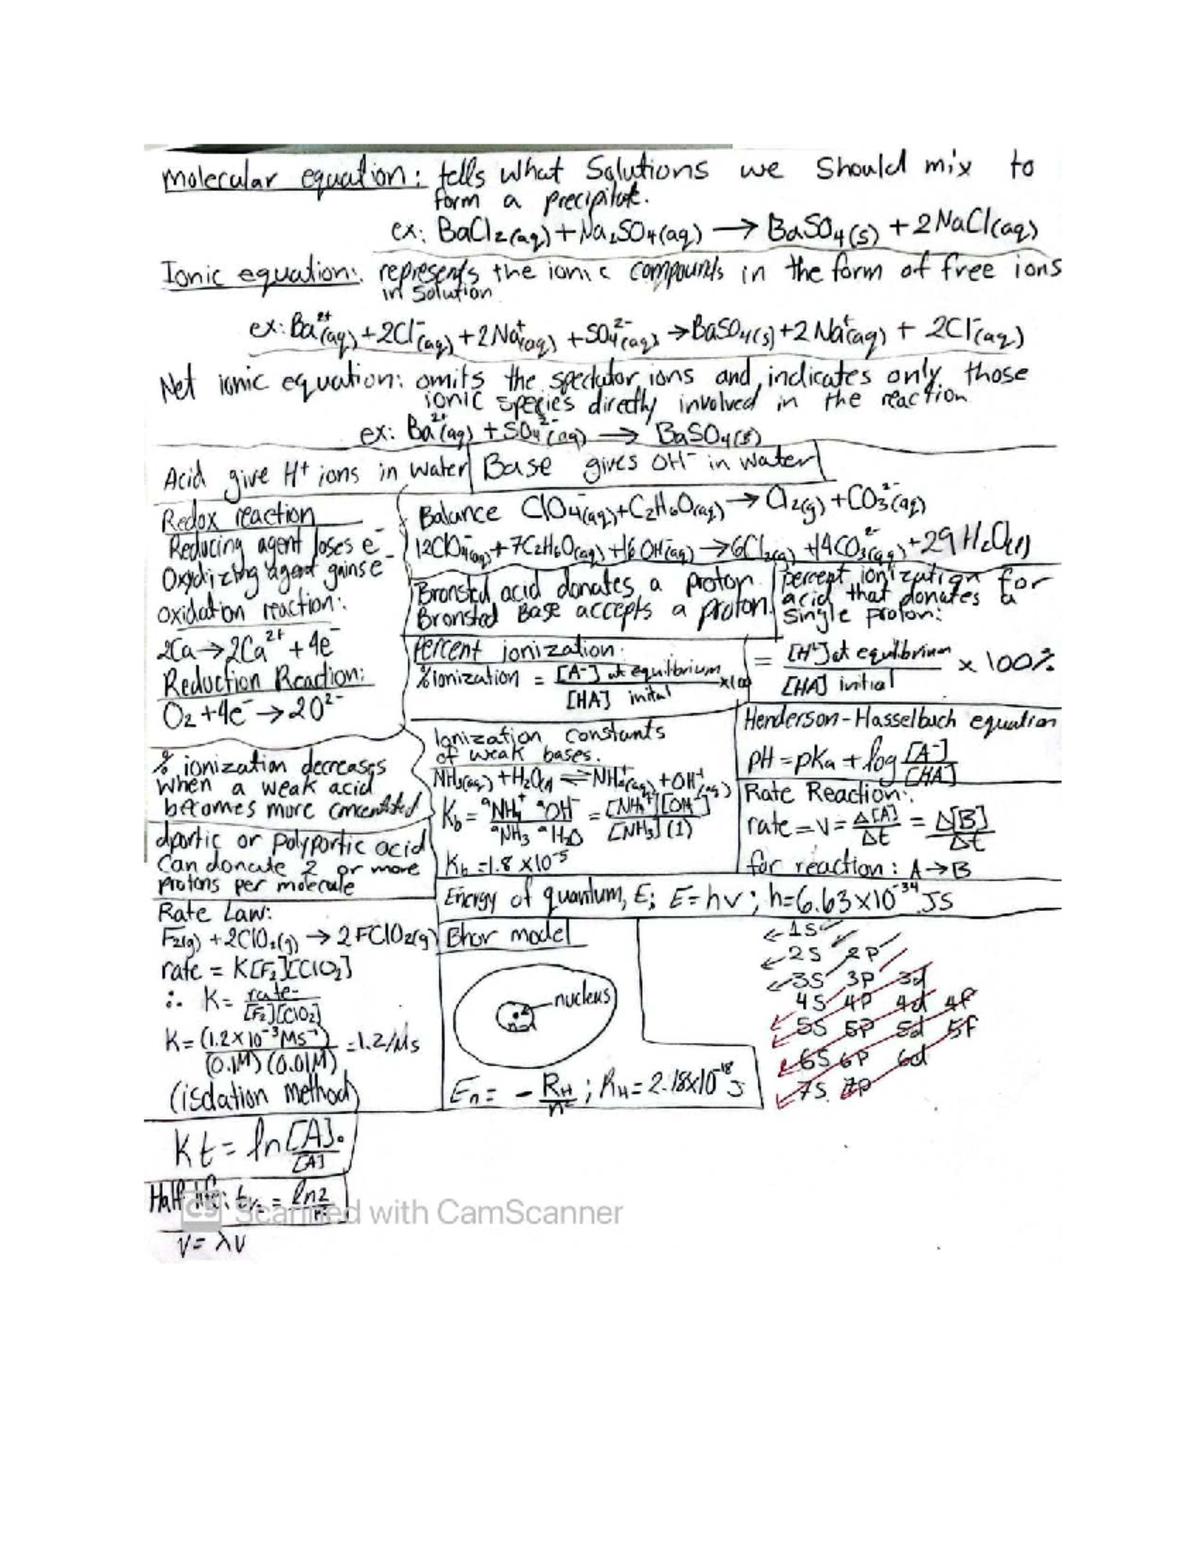 molecular equation: tells what Solutions we should mix to
form a precipitate.
ex: BaCl2(aq) + Na2SO4(aq) → BaSO4(s) + 2NaCl(aq)
Ionic equation: represents the ionic compounds in the form of free ions
in solution
ex: Ba²⁺(aq) + 2Cl⁻(aq) + 2Na⁺(aq) + SO4²⁻(aq) → BaSO4(s) + 2Na⁺(aq) + 2Cl⁻(aq)
Net ionic equation: omits the spectator ions and indicates only those
ionic species directly involved in the reaction
ex: Ba²⁺(aq) + SO4²⁻(aq) → BaSO4(s)
Acid give H⁺ ions in water
Base gives OH⁻ in water
Redox reaction
Reducing agent loses e⁻
Oxydizing agent gains e⁻
oxidation reaction:
2Ca → 2Ca²⁺ + 4e⁻
Reduction Reaction:
O2 + 4e⁻ → 2O²⁻
Balance ClO4⁻(aq) + C2H6O(aq) → Cl2(g) + CO3²⁻(aq)
12ClO4⁻(aq) + 7C2H6O(aq) + 16OH⁻(aq) → 6Cl2(g) + 14CO3²⁻(aq) + 29H2O(l)
Bronsted acid donates a proton
Bronsted Base accepts a proton.
percent ionization for
acid that donates a
single proton:
Percent ionization:
%ionization = [A⁻] at equilibrium / [HA] inital x100
= [H⁺] at equilibrium / [HA] initial × 100%
% ionization decreases
when a weak acid
becomes more concentrated
diportic or polyportic acid
can doncate 2 or more
protons per molecule
Ionization constants
of weak bases.
NH3(aq) + H2O(l) ⇌ NH4⁺(aq) + OH⁻(aq)
Kb = aNH4⁺ aOH⁻ / aNH3 aH2O = [NH4⁺][OH⁻] / [NH3](1)
Kb = 1.8 x 10⁻⁵
Henderson-Hasselbach equation
pH = pKa + log [A⁻]/[HA]
Rate Reaction:
rate = v = Δ[A]/Δt = Δ[B]/Δt
for reaction: A → B
Energy of quantum, E; E = hν; h = 6.63×10⁻³⁴ JS
Rate Law:
F2(g) + 2ClO2(g) → 2FClO2(g)
rate = K[F2][ClO2]
∴ K = rate / [F2][ClO2]
K = (1.2×10⁻³Ms⁻¹) / (0.1M)(0.01M) = 1.2/Ms
(isolation method)
Bhor model
nucleus
En = - RH/n²; RH = 2.18x10⁻¹⁸ J
1S
2S 2P
3S 3P 3d
4S 4P 4d 4f
5S 5P 5d 5f
6S 6P 6d
7S 7P
Kt = ln [A]₀/[A]
Half life: t½ = ln2/K
V = λν
CS Scanned with CamScanner